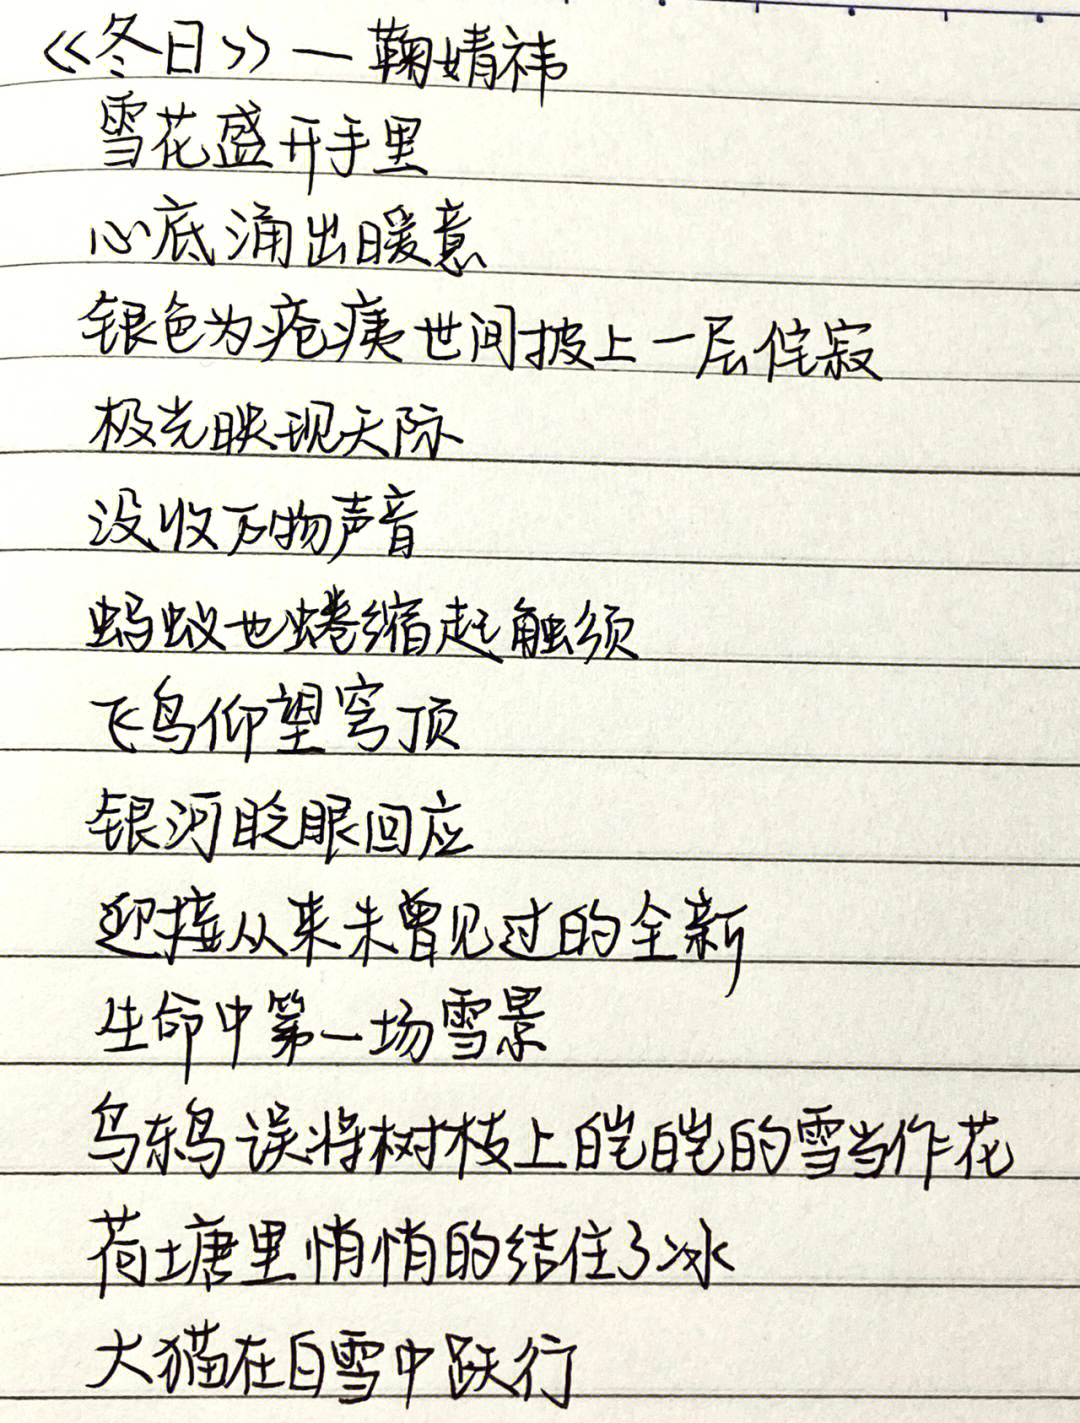 《冬日》一鞠婧祎
雪花盛开手里
心底涌出暖意
银色为疮痍世间披上一层侘寂
极光映现天际
没收万物声音
蚂蚁也蜷缩起触须
飞鸟仰望穹顶
银河眨眼回应
迎接从来未曾见过的全新
生命中第一场雪景
乌鸫误将树枝上皑皑的雪当作花
荷塘里悄悄的结住了冰
大猫在白雪中跃行